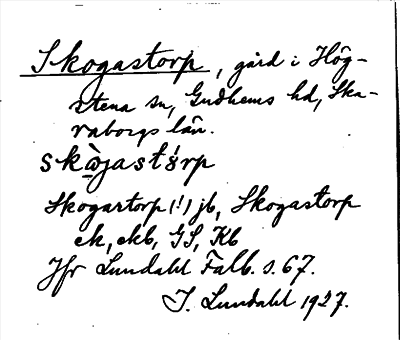 Skogastorp, gård i Hög-
stena sn, Gudhems hd, Ska-
raborgs län.
Skogartorp (!) jb, Skogastorp
ek, ekb, GS, Kb
Jfr Lundahl Falb. s. 67.
I. Lundahl 1927.